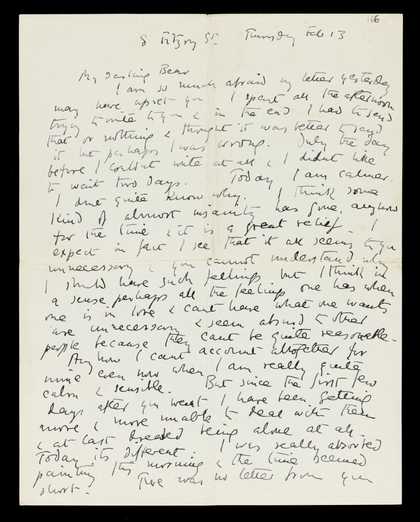 166
8 Fitzroy St. Thursday Feb 13
My darling Bear
I am so much afraid my letter yesterday
may have upset you I spent all the afternoon
trying to write to you & in the end I had to send
that or nothing & thought it was better to send
it but perhaps I was wrong. Only the day
before I couldn't write at all & I didn't like
to wait two days. Today I am calmer
I dont quite know why. I think some
kind of almost insanity has gone, anyhow
for the time & it is a great relief. I
expect in fact I see that it all seems to you
unnecessary & you cannot understand why
I should have such feelings but I think in
a sense perhaps all the feelings one has when
one is in love & cant have what one wants
are unnecessary & seem absurd to other
people because they cant be quite reasonable.
Anyhow I cant account altogether for
mine even now when I am really quite
calm & sensible. But since the first few
days after you went I have been getting
more & more unable to deal with them
& at last dreaded being alone at all.
Today its different. I was really absorbed
painting this morning & the time seemed
short. There was no letter from you